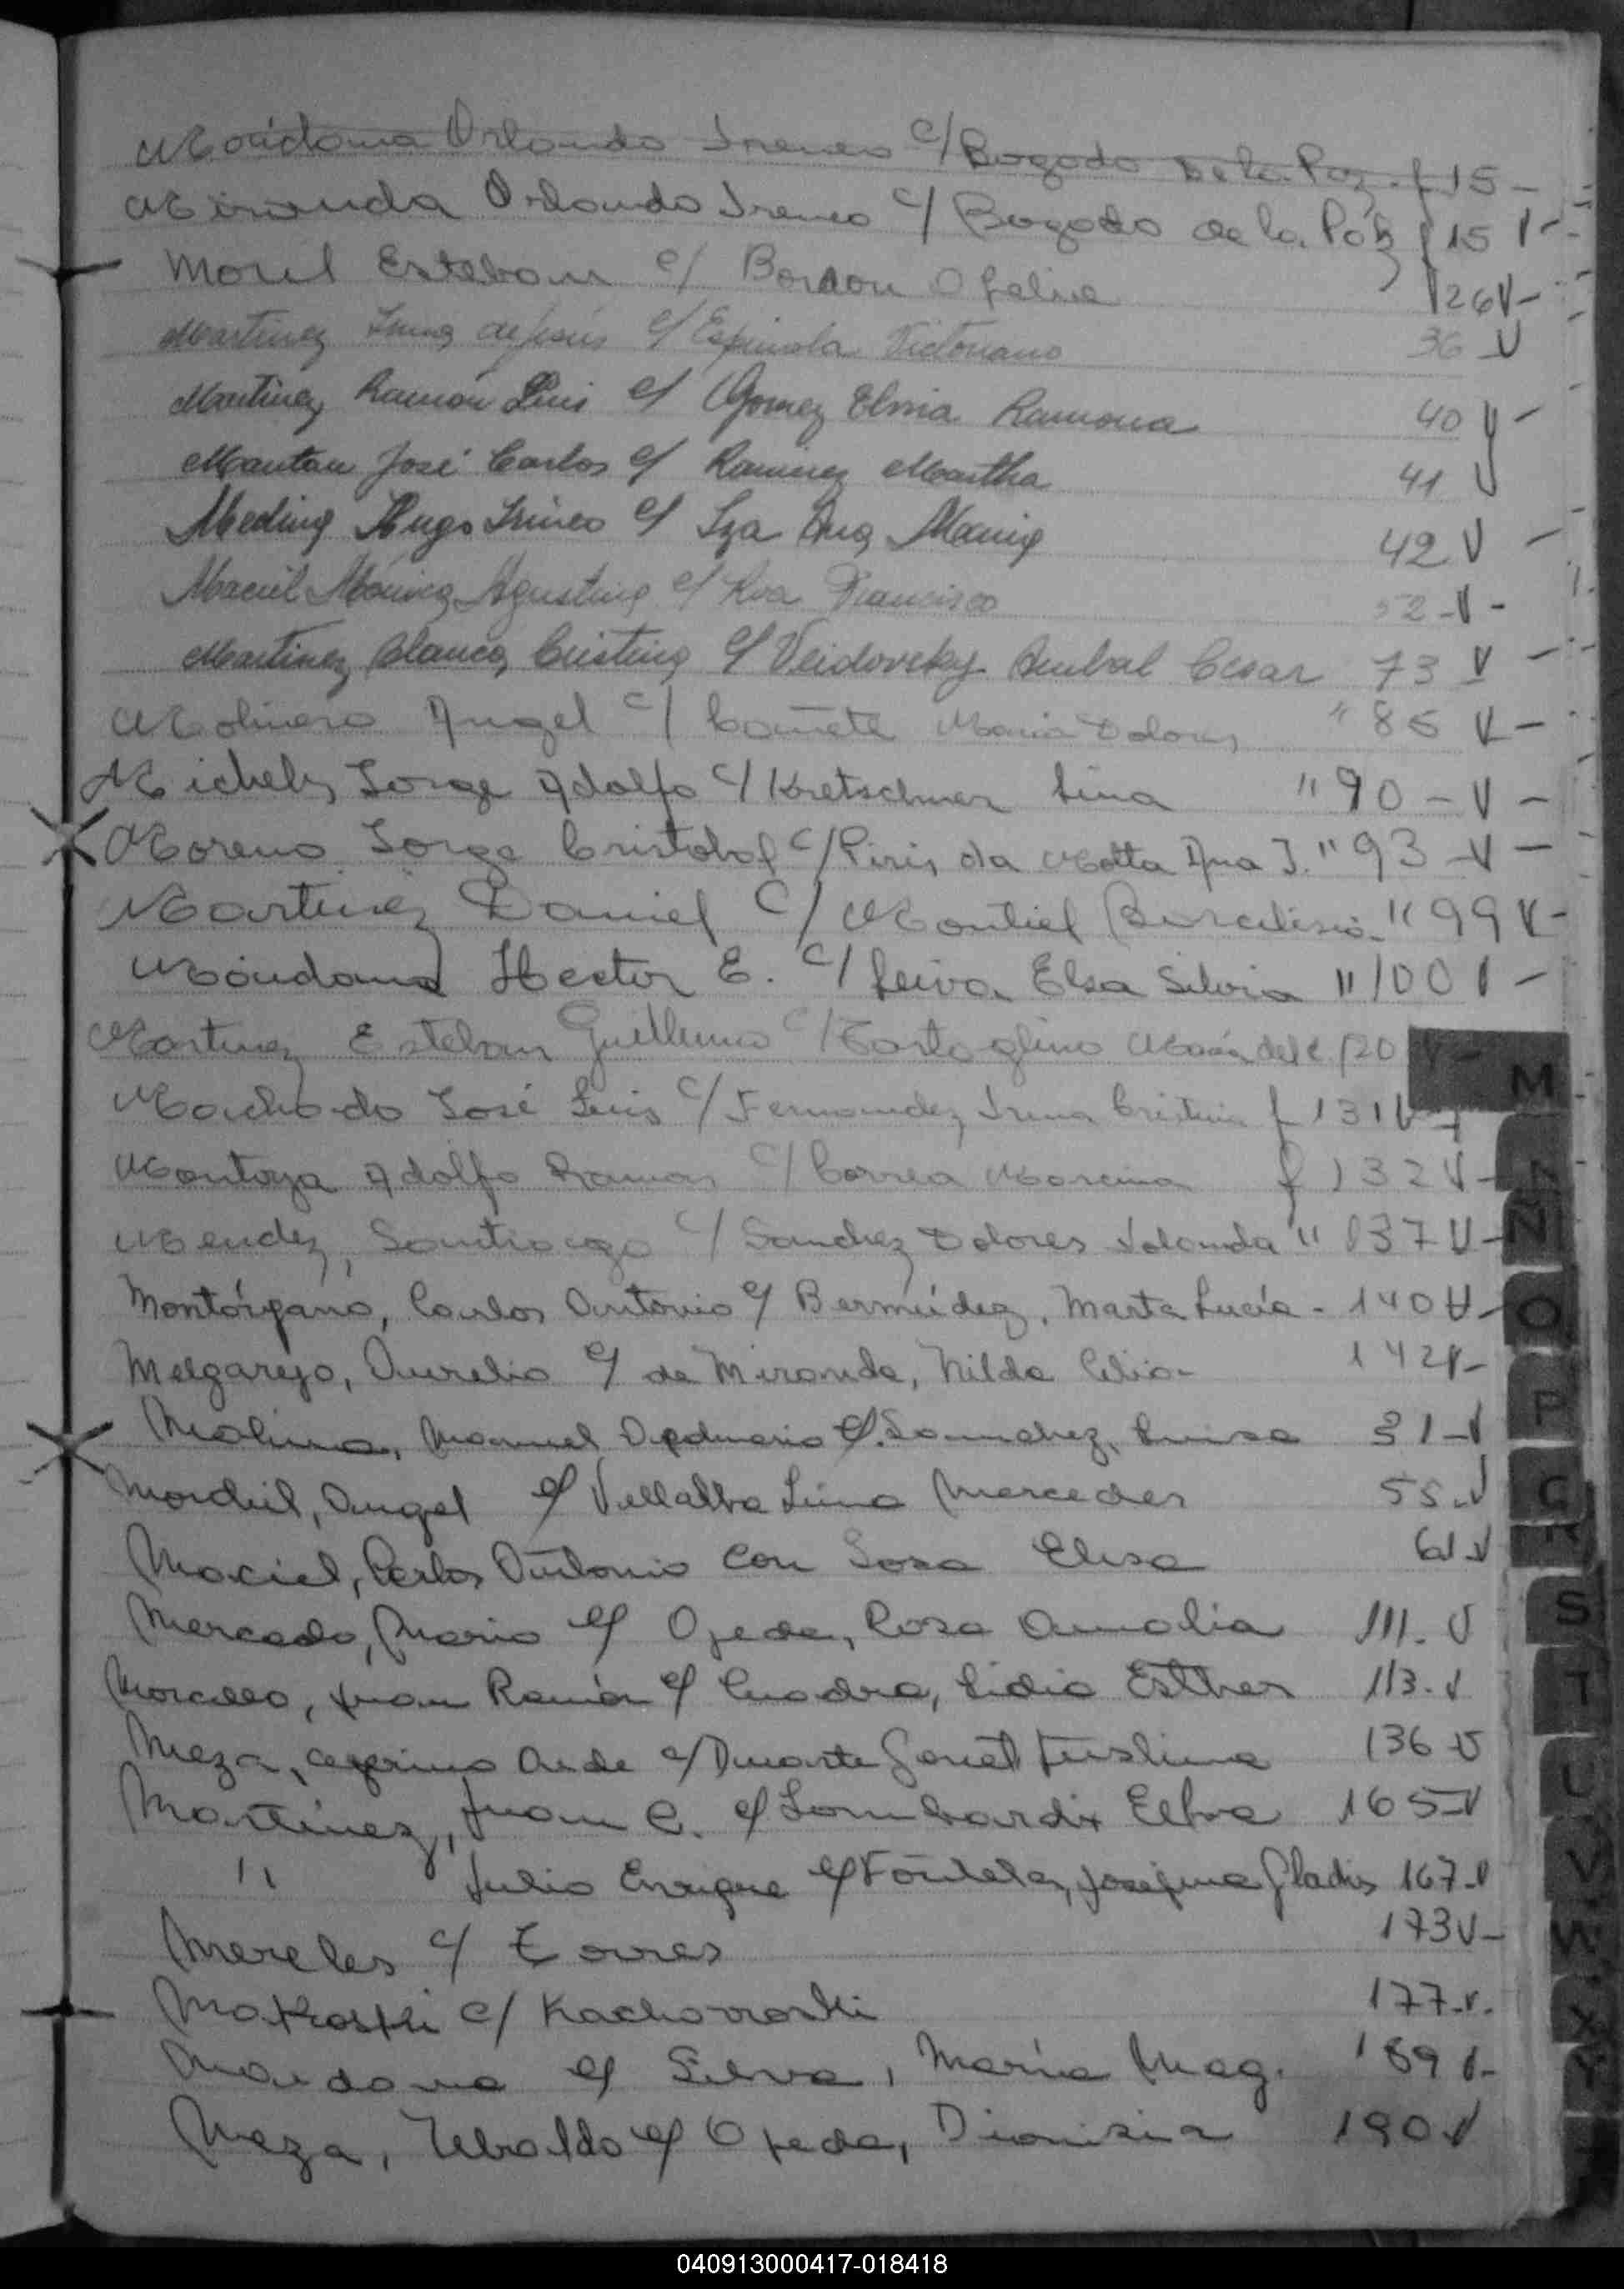 Maidana Orlando Ireneo c/ Bogado De la Paz f 15 -
Miranda Orlando Ireneo c/ Bogado de la Páz f 15 V -
Morel Esteban c/ Bordon Ofelia f 26 V -
Martinez Irma de Jesús c/ Espinola Victoriano 36 V
Martinez Ramón Luis c/ Gomez Elvia Ramona 40 V -
Mantau José Carlos c/ Ramirez Martha 41 V
Medina Hugo Irineo c/ Iza Ana Maria 42 V -
Maciel Mónica Agustina c/ Roa Francisco 52 - V -
Martinez Blanca Cristina c/ Veidovsky Anibal Cesar 73 V -
Molinero Angel c/ Cañete Maria Dolores " 85 V -
Michely Jorge Adolfo c/ Kretschmer Lina " 90 - V -
Moreno Jorge Cristobal c/ Piris da Motta Ana J. " 93 - V -
Martinez Daniel c/ Montiel " 99 V -
Maidana Hector E. c/ Leiva Elsa Silvia " 100 V -
Martinez Esteban Guillermo c/ Maria del C. 120 V -
Machado José Luis c/ Fernandez Irma Cristina f 131 V -
Montoya Adolfo Ramon c/ Correa f 132 V -
Mendez, Santiago c/ Sanchez Dolores Yolanda " 137 V -
Montórfano, Carlos Antonio c/ Bermúdez, Marta Lucía - 140 V -
Melgarejo, Aurelio c/ de Miranda, Nilda Celia - 142 V -
Molina, Manuel c/ Sanchez, Luisa 31 - V
Mordiel, Angel c/ Villalba Lina Mercedes 55 - V
Maciel, Carlos Antonio con Sosa Elisa 61 - V
Mercado, Mario c/ Ojeda, Rosa Amalia 111. V
Morcillo, Juan Ramón c/ Cuadra, Lidia Esther 113. V
Meza, Ceferino c/ Duarte 136 V
Martínez, Juan C. c/ Lombardi Elba 165 - V
" Julio Enrique c/ Josefina Gladis 167 - V
Mereles c/ Torres 173 V -
c/ 177 - V.
Maidana c/ Silva, María Mag. 189 V -
Meza, Ubaldo c/ Ojeda, Dionisia 190 V
M
N
Ñ
O
P
R
S
T
U
V
W
X
Y
040913000417-018418